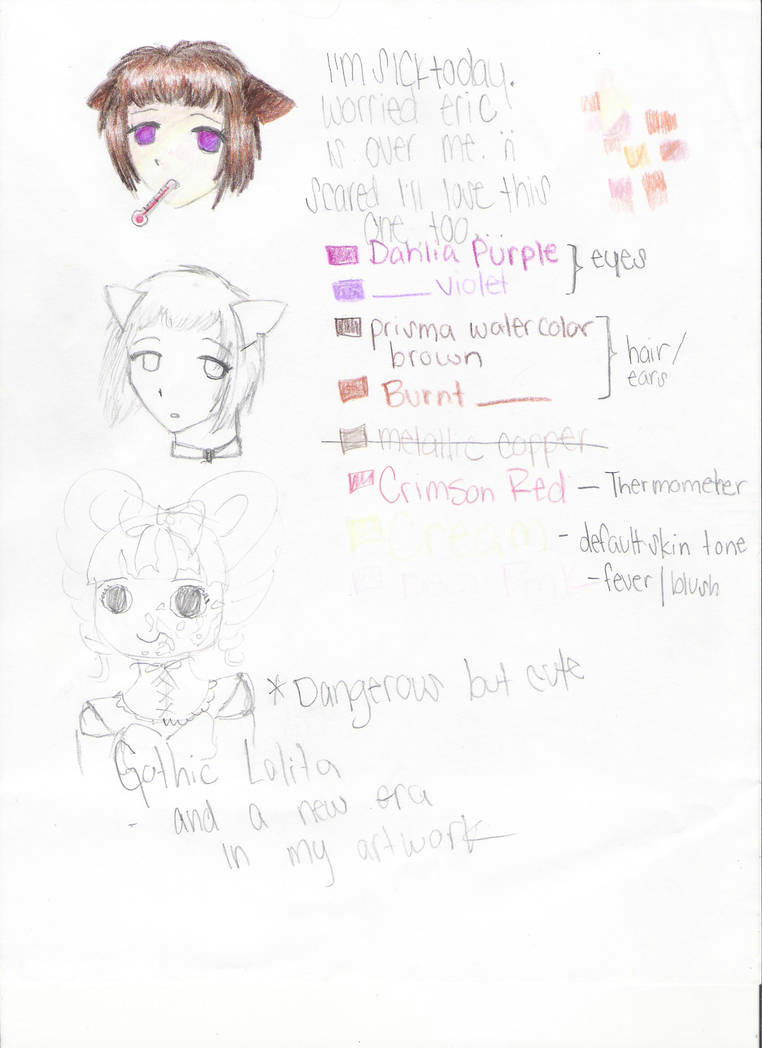 I'm sick today.
Worried eric
is over me. ü
scared I'll love this
one too...
Dahlia Purple
eyes
____ Violet
prisma watercolor
brown
hair/
ears
Burnt ____
metallic copper
Crimson Red – Thermometer
Cream - default skin tone
Pink - fever/blush
*Dangerous but cute
Gothic Lolita
- and a new era
in my artwork